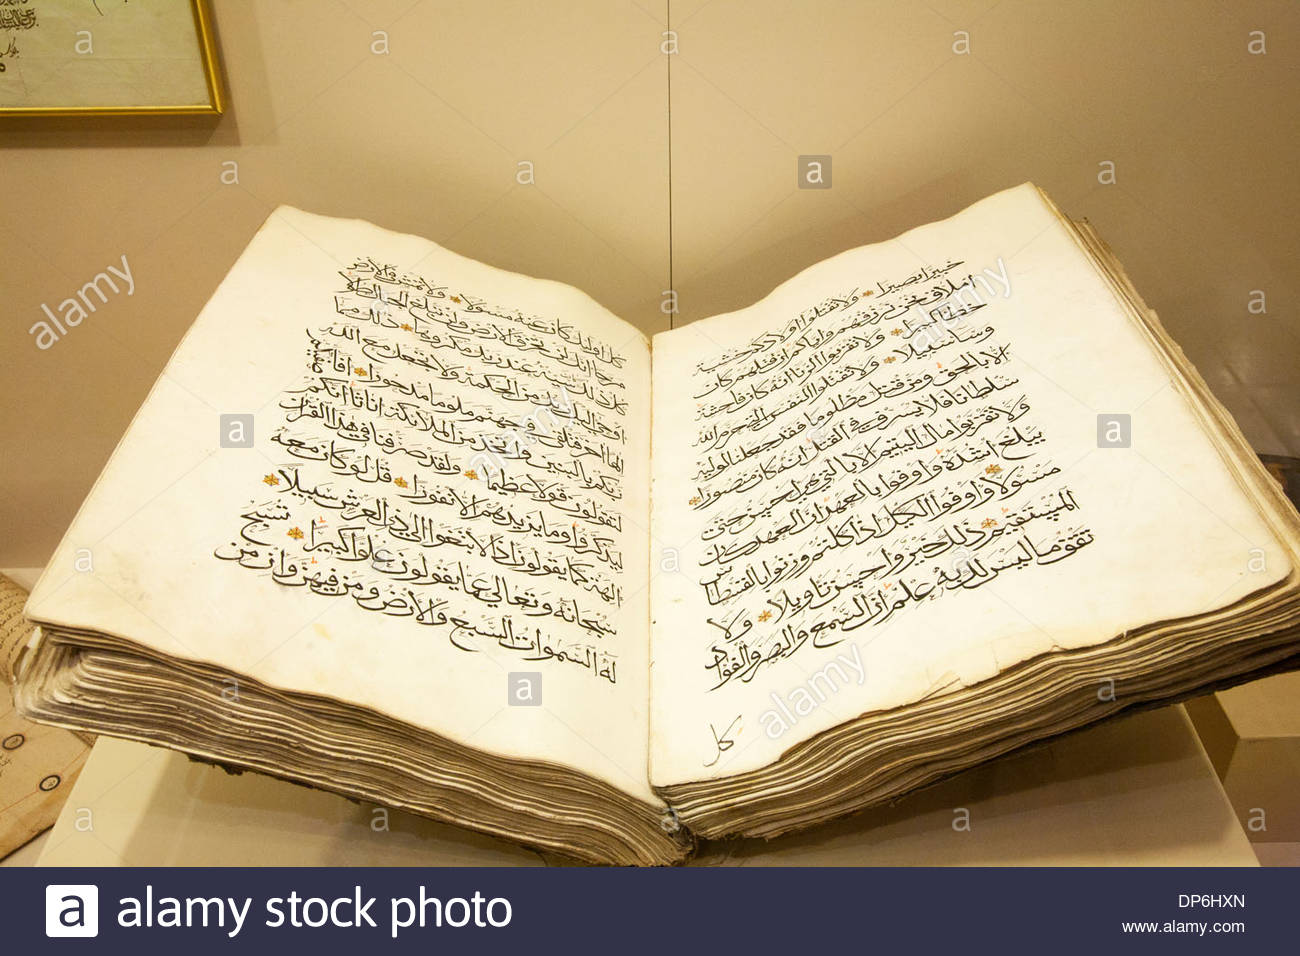 خبيرا بصيرا ولا تقتلوا اولادكم خشية
املاق نحن نرزقهم واياكم ان قتلهم كان
خطأ كبيرا ولا تقربوا الزنا انه كان فاحشة
وساء سبيلا ولا تقتلوا النفس التي حرم الله
الا بالحق ومن قتل مظلوما فقد جعلنا لوليه
سلطانا فلا يسرف في القتل انه كان منصورا
ولا تقربوا مال اليتيم الا بالتي هي احسن حتى
يبلغ اشده واوفوا بالعهد ان العهد كان
مسئولا واوفوا الكيل اذا كلتم وزنوا بالقسطاس
المستقيم ذلك خير واحسن تاويلا ولا
تقف ما ليس لك به علم ان السمع والبصر والفؤاد
كل
كل اولئك كان عنه مسئولا ولا تمش في الارض
مرحا انك لن تخرق الارض ولن تبلغ الجبال طولا
كل ذلك كان سيئه عند ربك مكروها ذلك مما
اوحى اليك ربك من الحكمة ولا تجعل مع الله
الها اخر فتلقى في جهنم ملوما مدحورا افاصفيكم
ربكم بالبنين واتخذ من الملائكة اناثا انكم
لتقولون قولا عظيما ولقد صرفنا في هذا القران
ليذكروا وما يزيدهم الا نفورا قل لو كان معه
الهة كما يقولون اذا لابتغوا الى ذي العرش سبيلا
سبحانه وتعالى عما يقولون علوا كبيرا تسبح
له السموات السبع والارض ومن فيهن وان من
alamy stock photo
DP6HXN
www.alamy.com